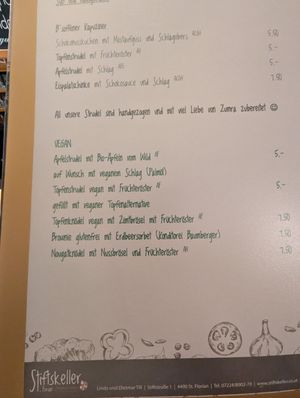 B'soffener Kapuziner 5,50
Schokomousskuchen mit Mostaufguss und Schlagobers ACGH
Topfenstrudel mit Früchteröster 5.-
Apfelstrudel mit Schlag 5.-
Eispalatschinke mit Schokosauce und Schlag ACGH 7,50
All unsere Strudel sind handgezogen und mit viel Liebe von Zumra zubereitet ☺
VEGAN
Apfelstrudel mit Bio-Äpfeln vom Wild 5.-
auf Wunsch mit veganem Schlag (Palmöl)
Topfenstrudel vegan mit Früchteröster 5.-
gefüllt mit veganer Topfenalternative
Topfenknödel vegan mit Zimtbrösel mit Früchteröster 7,50
Brownie glutenfrei mit Erdbeersorbet (Konditorei Baumberger) 7,50
Nougatknödel mit Nussbrösel und Früchteröster 7,50
Stiftskeller
Linda und Dietmar Till | Stiftstraße 1 | 4490 St. Florian | Tel. 07224/8902-70 |